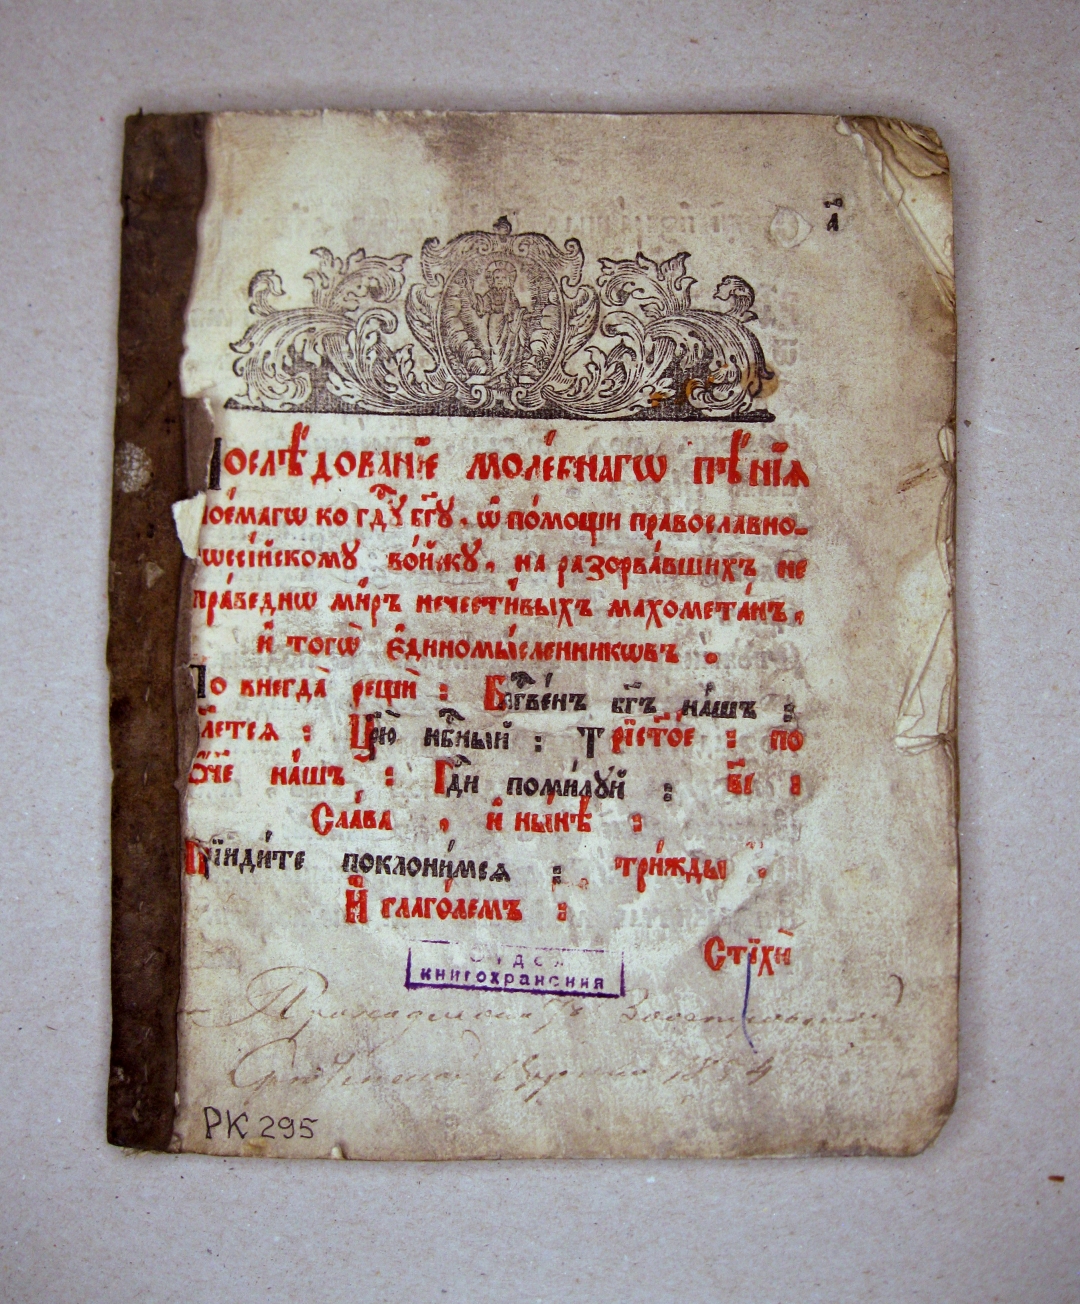 а҃
Послѣ́дованїе моле́бнагѡ пѣ́нїѧ
пое́магѡ ко гдⷭ҇у бг҃у, ѡ҆ по́мощи православно-
рѡссі́йскому во́йску, на разорва́вшихъ не
пра́веднѡ ми́ръ нечести́выхъ махомета́нъ,
и҆ тогѡ̀ є҆диномы́сленникѡвъ :
По внегда̀ рещѝ : Бл҃гⷭ҇ве́нъ бг҃ъ на́шъ :
Цр҃ю̀ нбⷭ҇ный : Трист҃о́е : по
ѻ҆́ч҃е на́шъ : Гдⷭ҇и поми́луй : в҃і :
Сла́ва , и҆ ны́нѣ :
Прїиди́те поклони́мсѧ : три́жды :
И҆ глаго́лемъ :
Стїхѝ
Отдел
книгохранения
РК 295